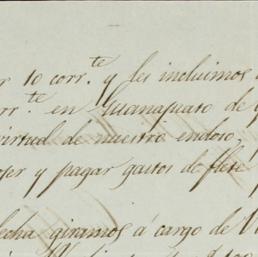 10 corr.te y les incluimos
te en Guanajuato de
virtud de nuestro endoso,
y pagar gastos de flete
fecha giramos á cargo de